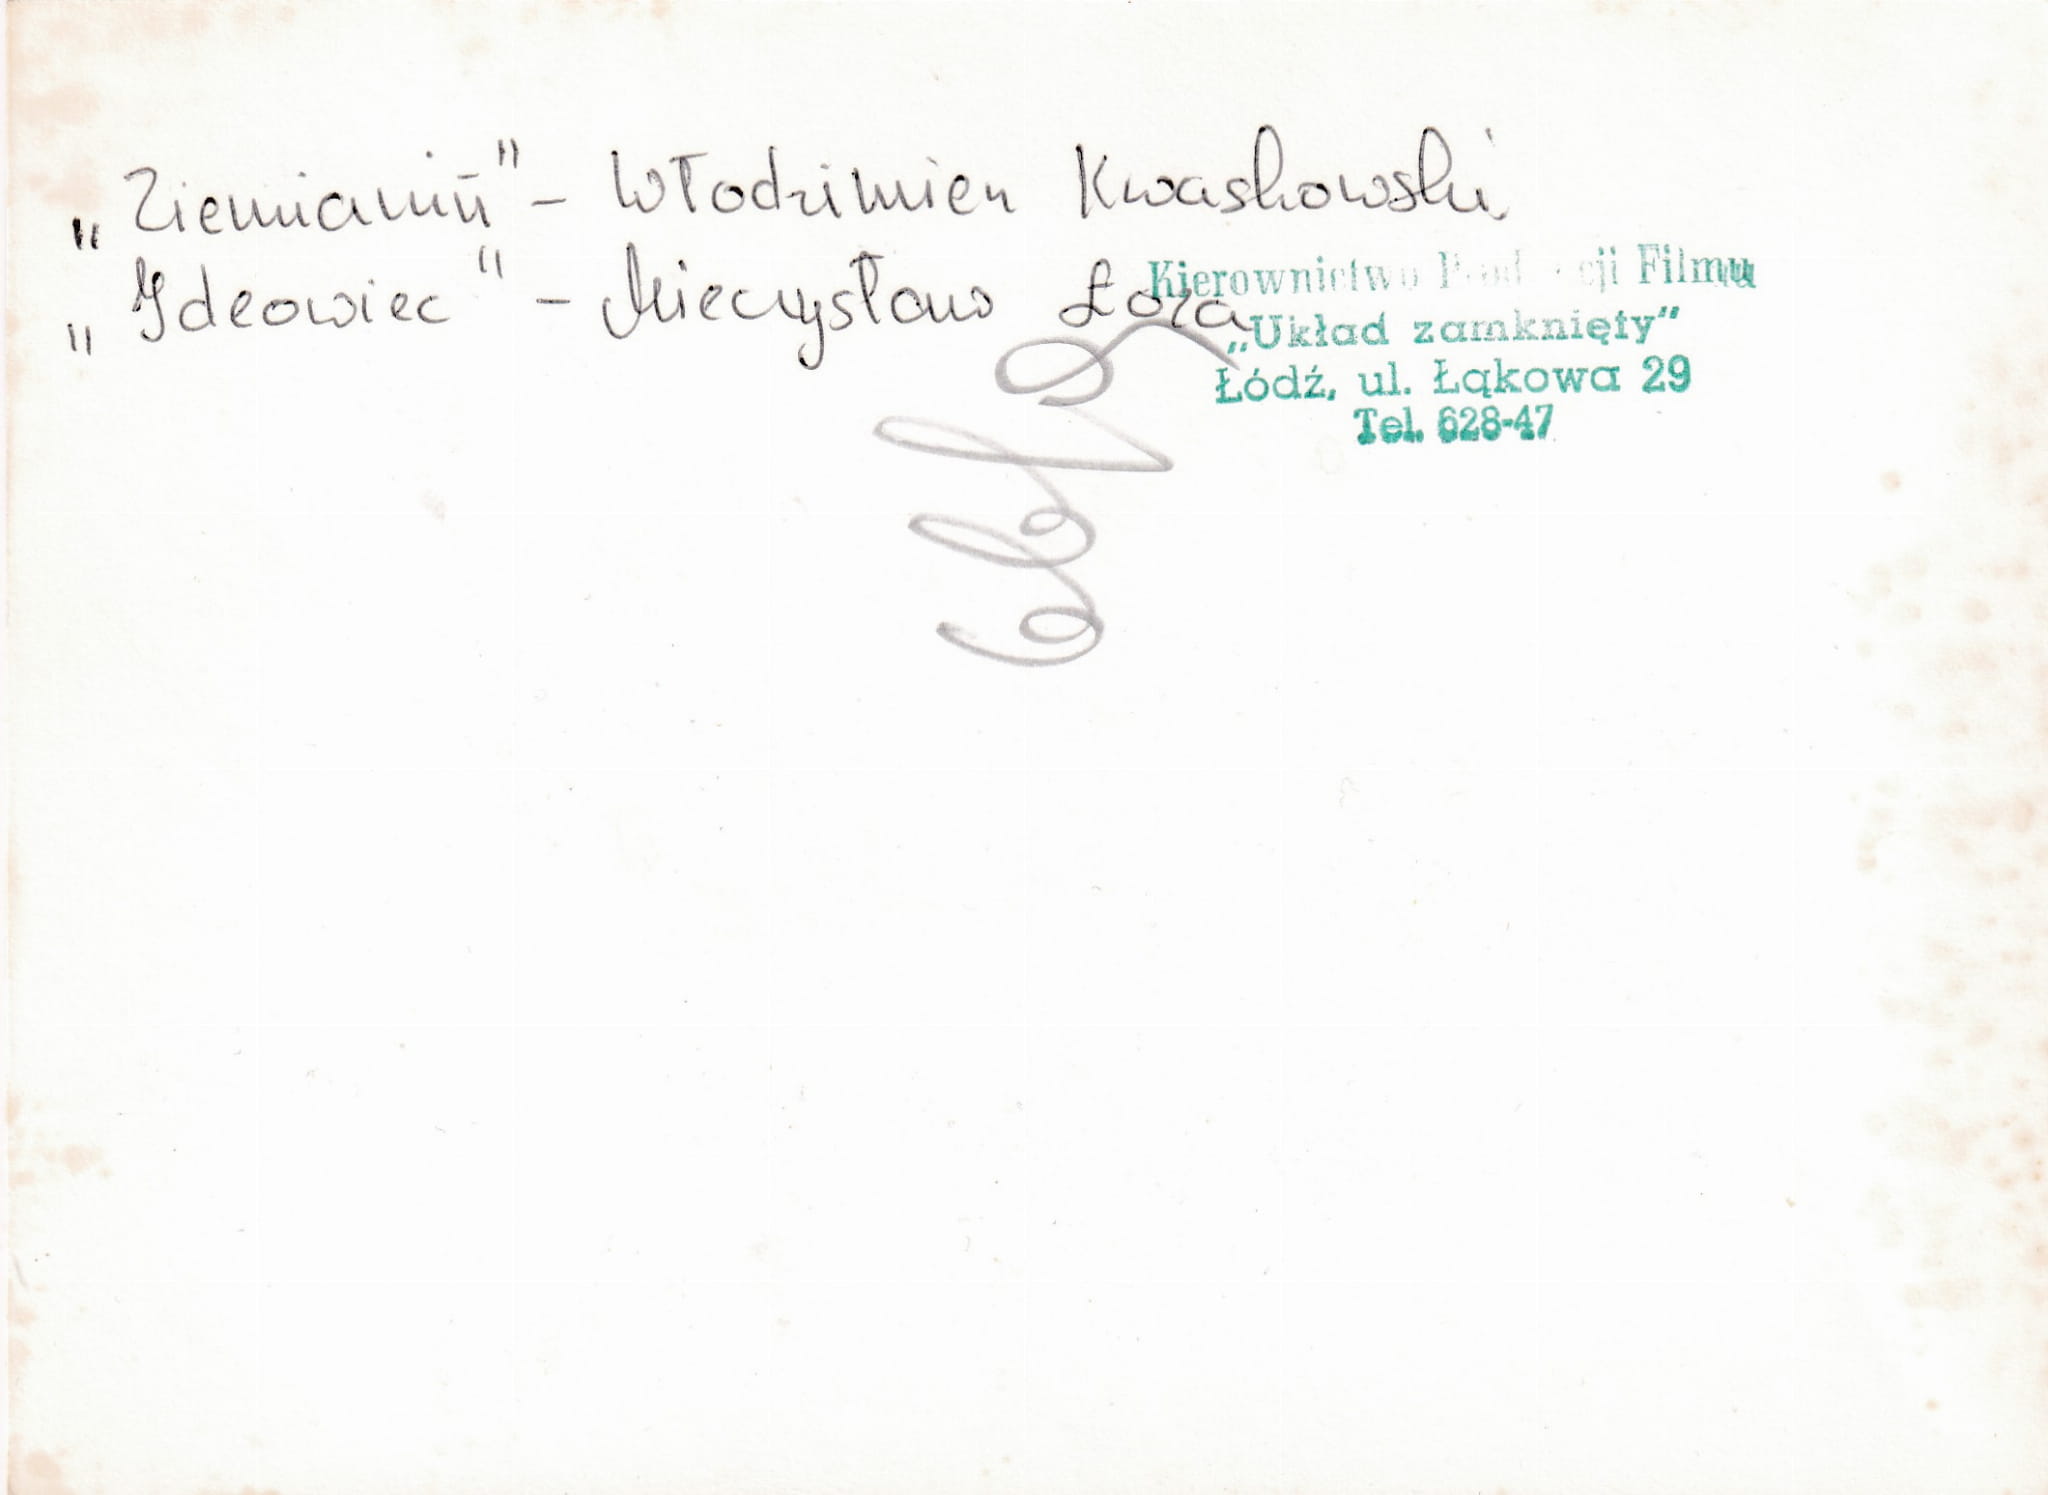 „Ziemianin" - Włodzimierz Kwaskowski
„Ideowiec" - Mieczysław Łoza
Kierownictwo Filmu
„Układ zamknięty"
Łódź, ul. Łąkowa 29
Tel. 628-47